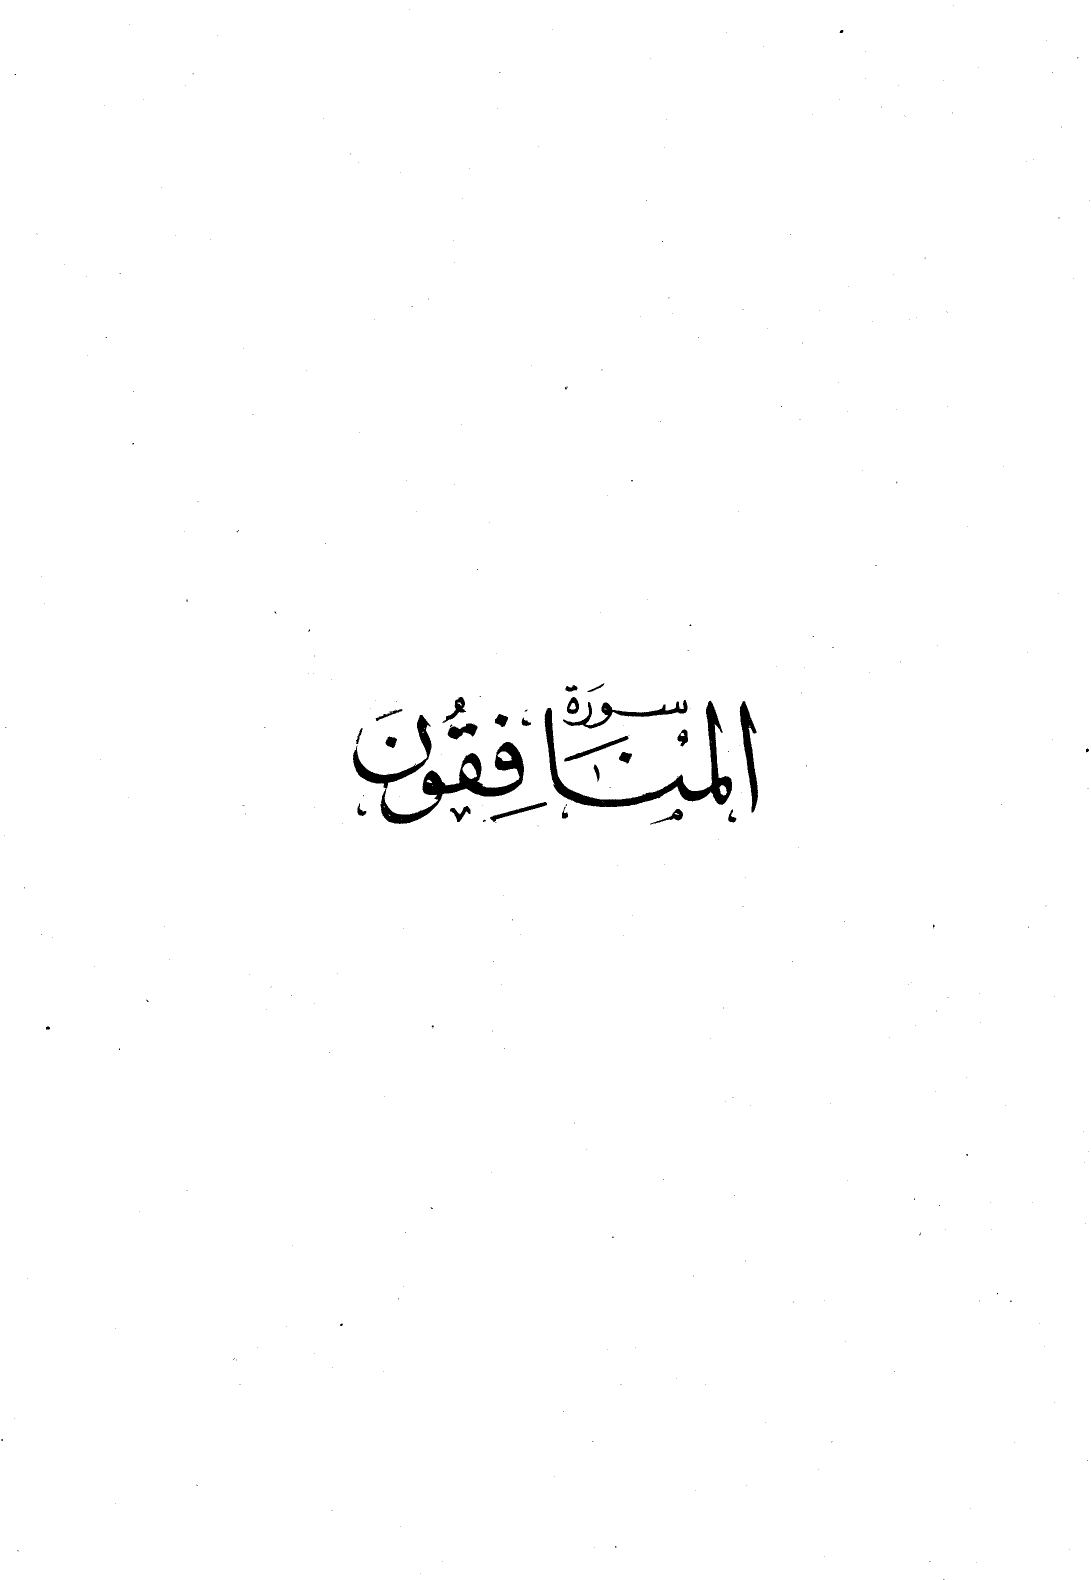 سورة
المُنَافِقُونَ